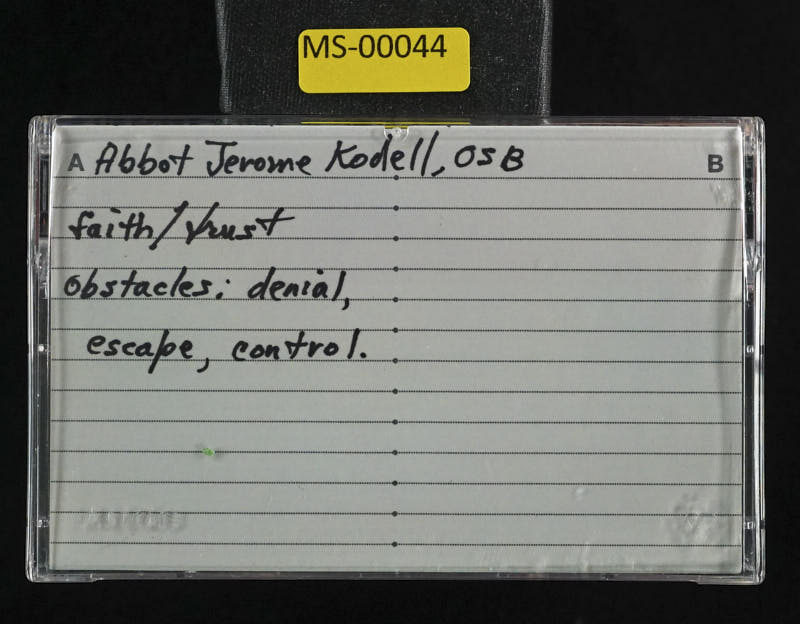 MS-00044
A Abbot Jerome Kodell, OSB B
faith/trust
obstacles: denial,
escape, control.